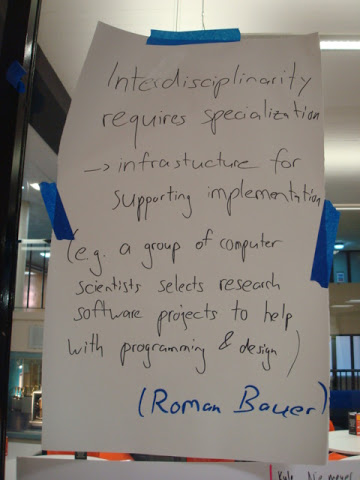 Interdisciplinarity
requires specialization
→ infrastucture for
supporting implementation
(e.g. a group of computer
scientists selects research
software projects to help
with programming & design)
(Roman Bauer)
Kyle